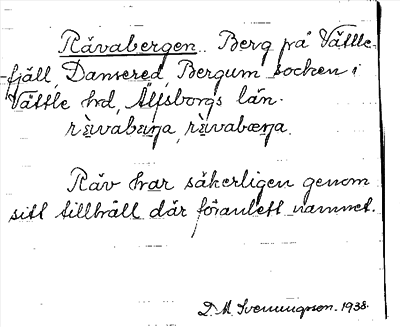 Rävabergen. Berg på Vättle-
fjäll, Dansered, Bergum socken i
Vättle hrd, Älfsborgs län.
rävabærɳa, rävabæɳa.
Räv har säkerligen genom
sitt tillhåll där föranlett namnet.
D. M. Svenungson. 1938.